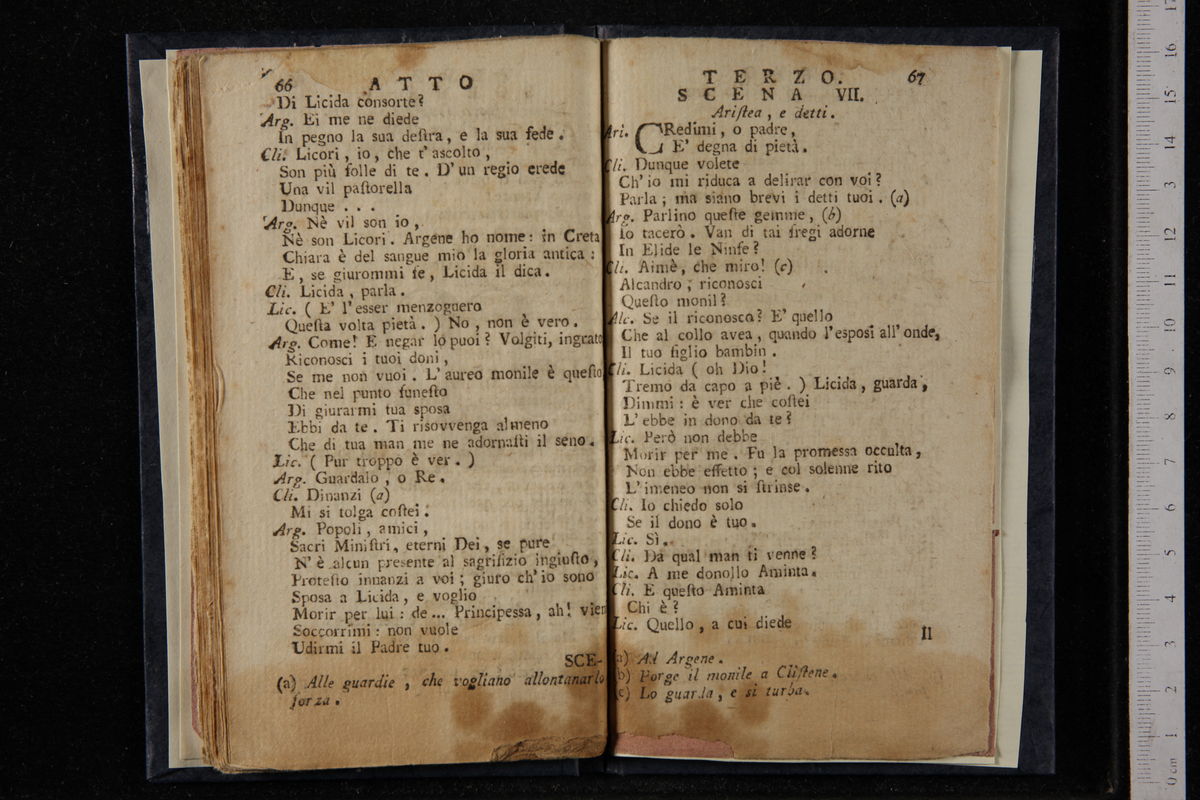 66 ATTO
Di Licida consorte?
Arg. Ei me ne diede
In pegno la sua deſtra, e la sua fede.
Cli. Licori, io, che t'ascolto,
Son più folle di te. D'un regio erede
Una vil paſtorella
Dunque . . .
Arg. Nè vil son io,
Nè son Licori. Argene ho nome: in Creta
Chiara è del sangue mio la gloria antica:
E, se giurommi fe, Licida il dica.
Cli. Licida, parla.
Lic. ( E' l'esser menzognero
Queſta volta pietà. ) No, non è vero.
Arg. Come! E negar lo puoi? Volgiti, ingrato
Riconosci i tuoi doni,
Se me non vuoi. L'aureo monile è queſto,
Che nel punto funeſto
Di giurarmi tua sposa
Ebbi da te. Ti risovvenga almeno
Che di tua man me ne adornaſti il seno.
Lic. ( Pur troppo è ver. )
Arg. Guardalo, o Re.
Cli. Dinanzi (a)
Mi si tolga coſtei.
Arg. Popoli, amici,
Sacri Miniſtri, eterni Dei, se pure
N'è alcun presente al sagrifizio ingiuſto,
Proteſto innanzi a voi; giuro ch'io sono
Sposa a Licida, e voglio
Morir per lui: de... Principessa, ah! vien
Soccorrimi: non vuole
Udirmi il Padre tuo.
SCE-
(a) Alle guardie, che vogliano allontanarlo
forza.
TERZO. 67
SCENA VII.
Ariſtea, e detti.
Ari. CRedimi, o padre,
E' degna di pietà.
Cli. Dunque volete
Ch'io mi riduca a delirar con voi?
Parla; ma siano brevi i detti tuoi. (a)
Arg. Parlino queſte gemme, (b)
Io tacerò. Van di tai fregi adorne
In Elide le Ninfe?
Cli. Aimè, che miro! (c)
Alcandro, riconosci
Queſto monil?
Alc. Se il riconosco? E' quello
Che al collo avea, quando l'esposi all'onde,
Il tuo figlio bambin.
Cli. Licida ( oh Dio!
Tremo da capo a piè. ) Licida, guarda,
Dimmi: è ver che coſtei
L'ebbe in dono da te?
Lic. Però non debbe
Morir per me. Fu la promessa occulta,
Non ebbe effetto; e col solenne rito
L'imeneo non si ſtrinse.
Cli. Io chiedo solo
Se il dono è tuo.
Lic. Sì.
Cli. Da qual man ti venne?
Lic. A me donollo Aminta.
Cli. E queſto Aminta
Chi è?
Lic. Quello, a cui diede
Il
(a) Ad Argene.
(b) Porge il monile a Cliſtene.
(c) Lo guarda, e si turba.
0 cm 1 2 3 4 5 6 7 8 9 10 11 12 13 14 15 16 17